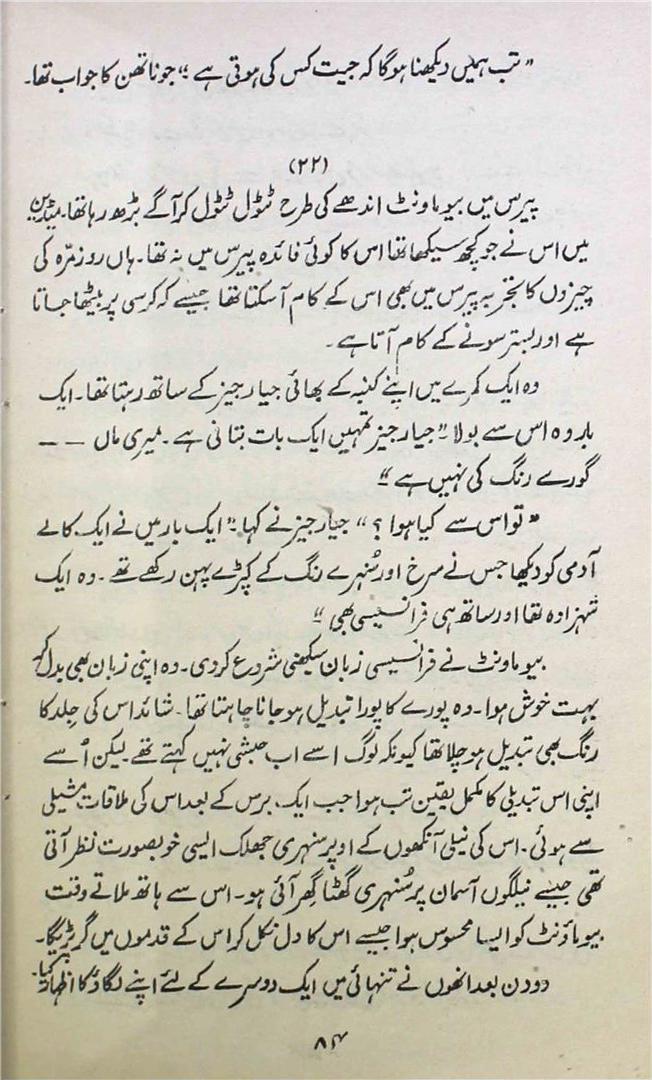 "تب ہمیں دیکھنا ہوگا کہ جیت کس کی ہوتی ہے"۔ جوناتھن کا جواب تھا۔
(۲۲)
پیرس میں بیوماونٹ اندھے کی طرح ٹٹول ٹٹول کر آگے بڑھ رہا تھا۔ میڈین
میں اس نے جو کچھ سیکھا تھا اس کا کوئی فائدہ پیرس میں نہ تھا۔ ہاں روزمرّہ کی
چیزوں کا تجربہ پیرس میں بھی اس کے کام آ سکتا تھا جیسے کہ کرسی پر بیٹھا جاتا
ہے اور بستر سونے کے کام آتا ہے۔
وہ ایک کمرے میں اپنے کنبہ کے بھائی جیارجیز کے ساتھ رہتا تھا۔ ایک
بار وہ اس سے بولا "جیارجیز تمہیں ایک بات بتانی ہے۔ میری ماں ــ ــ
گورے رنگ کی نہیں ہے"
"تو اس سے کیا ہوا؟" جیارجیز نے کہا۔ "ایک بار میں نے ایک کالے
آدمی کو دیکھا جس نے سرخ اور سُنہرے رنگ کے کپڑے پہن رکھے تھے۔ وہ ایک
شہزادہ تھا اور ساتھ ہی فرانسیسی بھی"
بیوماونٹ نے فرانسیسی زبان سیکھنی شروع کر دی۔ وہ اپنی زبان بھی بدل کر
بہت خوش ہوا۔ وہ پورے کا پورا تبدیل ہو جانا چاہتا تھا۔ شائد اس کی جِلد کا
رنگ بھی تبدیل ہو چلا تھا کیونکہ لوگ اسے اب حبشی نہیں کہتے تھے۔ لیکن اُسے
اپنی اس تبدیلی کا مکمل یقین تب ہوا جب ایک برس کے بعد اس کی ملاقات مشیلی
سے ہوئی۔ اس کی نیلی آنکھوں کے اوپر سنہری جھلک ایسی خوبصورت نظر آتی
تھی جیسے نیلگوں آسمان پر سُنہری گھٹا گھِر آئی ہو۔ اس سے ہاتھ ملاتے وقت
بیوماؤنٹ کو ایسا محسوس ہوا جیسے اس کا دل نکل کر اس کے قدموں میں گر پڑیگا۔
دو دن بعد انھوں نے تنہائی میں ایک دوسرے کے لئے اپنے لگاؤ کا اظہار کیا۔
۸۴